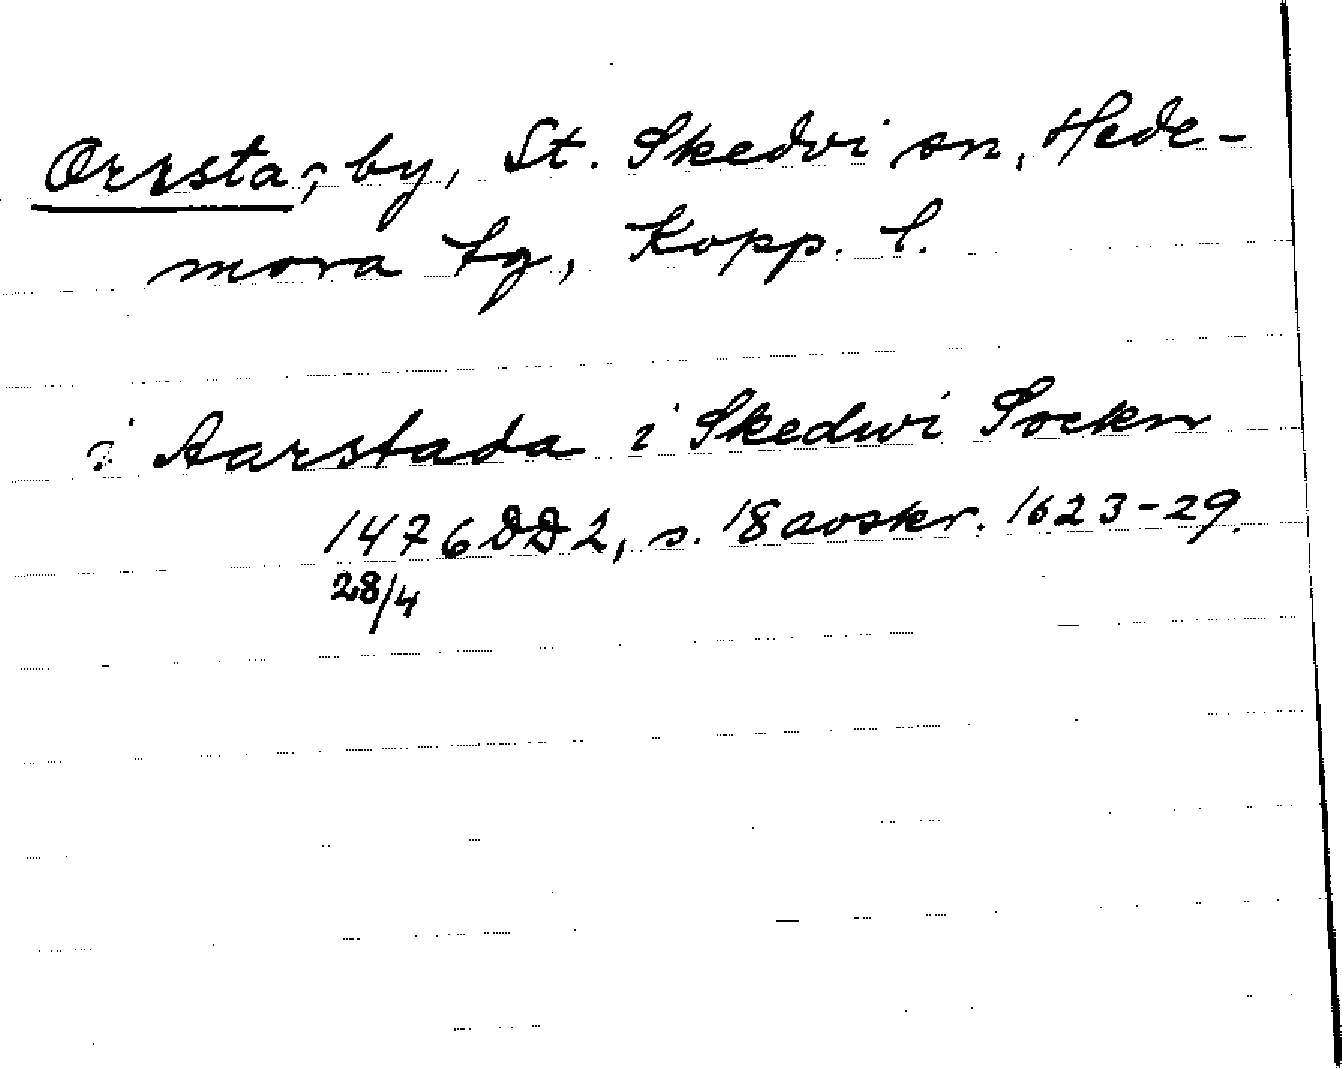 Orrsta, by, St. Skedvi sn, Hede-
mora tg, Kopp. l.
i Aarstada i Skedwi Sockn
1476 DD 2, s. 18 avskr. 1623-29.
28/4